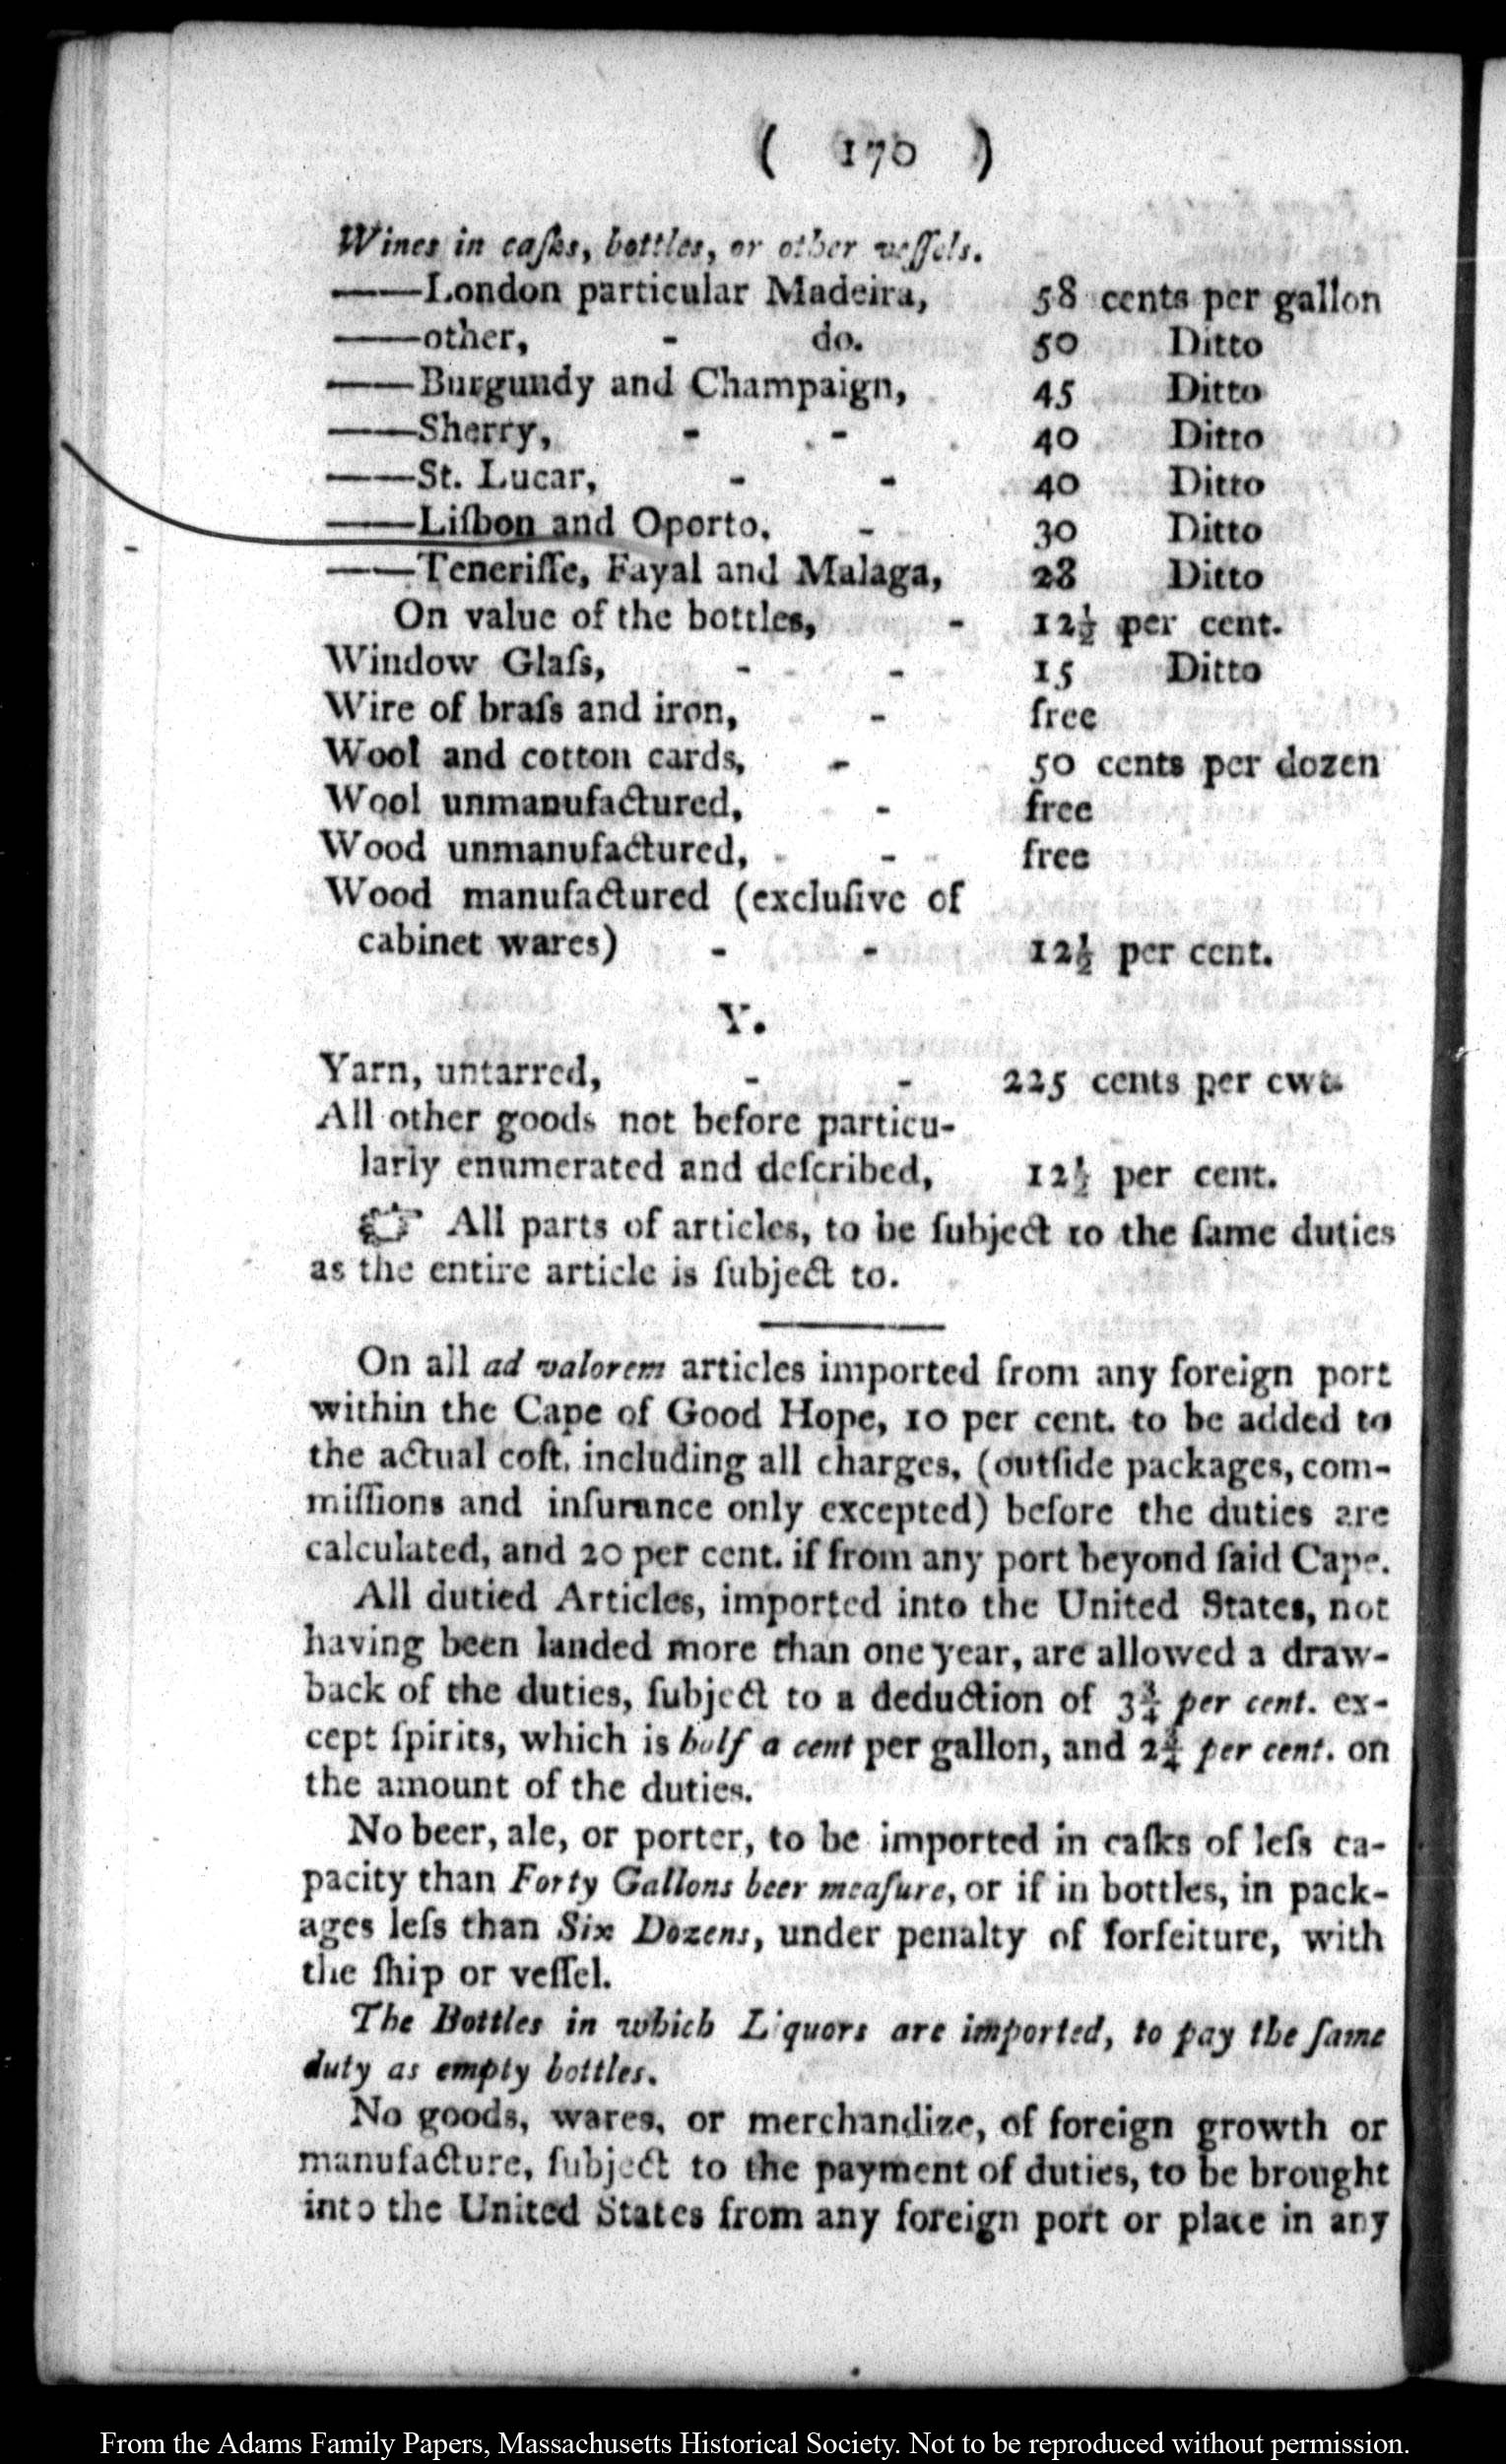 ( 170 )
Wines in caſks, bottles, or other veſſels.
——London particular Madeira, 58 cents per gallon
——other, - do. 50 Ditto
——Burgundy and Champaign, 45 Ditto
——Sherry, - - 40 Ditto
——St. Lucar, - - 40 Ditto
——Liſbon and Oporto, - 30 Ditto
——Teneriffe, Fayal and Malaga, 28 Ditto
On value of the bottles, - 12½ per cent.
Window Glaſs, - - 15 Ditto
Wire of braſs and iron, - free
Wool and cotton cards, - 50 cents per dozen
Wool unmanufactured, - free
Wood unmanufactured, - free
Wood manufactured (excluſive of
cabinet wares) - - 12½ per cent.
Y.
Yarn, untarred, - - 225 cents per cwt.
All other goods not before particu-
larly enumerated and deſcribed, 12½ per cent.
☞ All parts of articles, to be ſubject to the ſame duties
as the entire article is ſubject to.
On all ad valorem articles imported from any foreign port
within the Cape of Good Hope, 10 per cent. to be added to
the actual coſt, including all charges, (outſide packages, com-
miſſions and inſurance only excepted) before the duties are
calculated, and 20 per cent. if from any port beyond ſaid Cape.
All dutied Articles, imported into the United States, not
having been landed more than one year, are allowed a draw-
back of the duties, ſubject to a deduction of 3¾ per cent. ex-
cept ſpirits, which is half a cent per gallon, and 2¾ per cent. on
the amount of the duties.
No beer, ale, or porter, to be imported in caſks of leſs ca-
pacity than Forty Gallons beer meaſure, or if in bottles, in pack-
ages leſs than Six Dozens, under penalty of forfeiture, with
the ſhip or veſſel.
The Bottles in which Liquors are imported, to pay the ſame
duty as empty bottles.
No goods, wares, or merchandize, of foreign growth or
manufacture, ſubject to the payment of duties, to be brought
into the United States from any foreign port or place in any
From the Adams Family Papers, Massachusetts Historical Society. Not to be reproduced without permission.